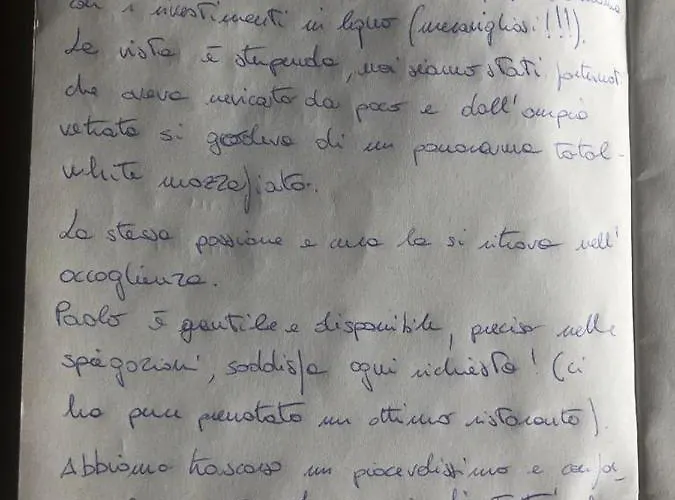 con i rivestimenti in legno (meravigliosi!!!).
La vista è stupenda, noi siamo stati fortunati
che aveva nevicato da poco e dall'ampia
vetrata si godeva di un panorama total-
white mozzafiato.
La stessa passione e cura la si ritrova nell'
accoglienza.
Paolo è gentile e disponibile, preciso nelle
spiegazioni, soddisfa ogni richiesta! (ci
ha pure prenotato un ottimo ristorante).
Abbiamo trascorso un piacevolissimo e